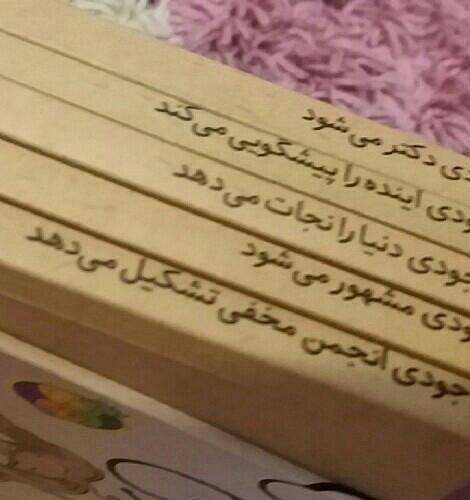 دی دکتر می‌شود
ودی اینده را پیشگویی می‌کند
جودی دنیا را نجات می‌دهد
ودی مشهور می‌شود
جودی انجمن مخفی تشکیل می‌دهد